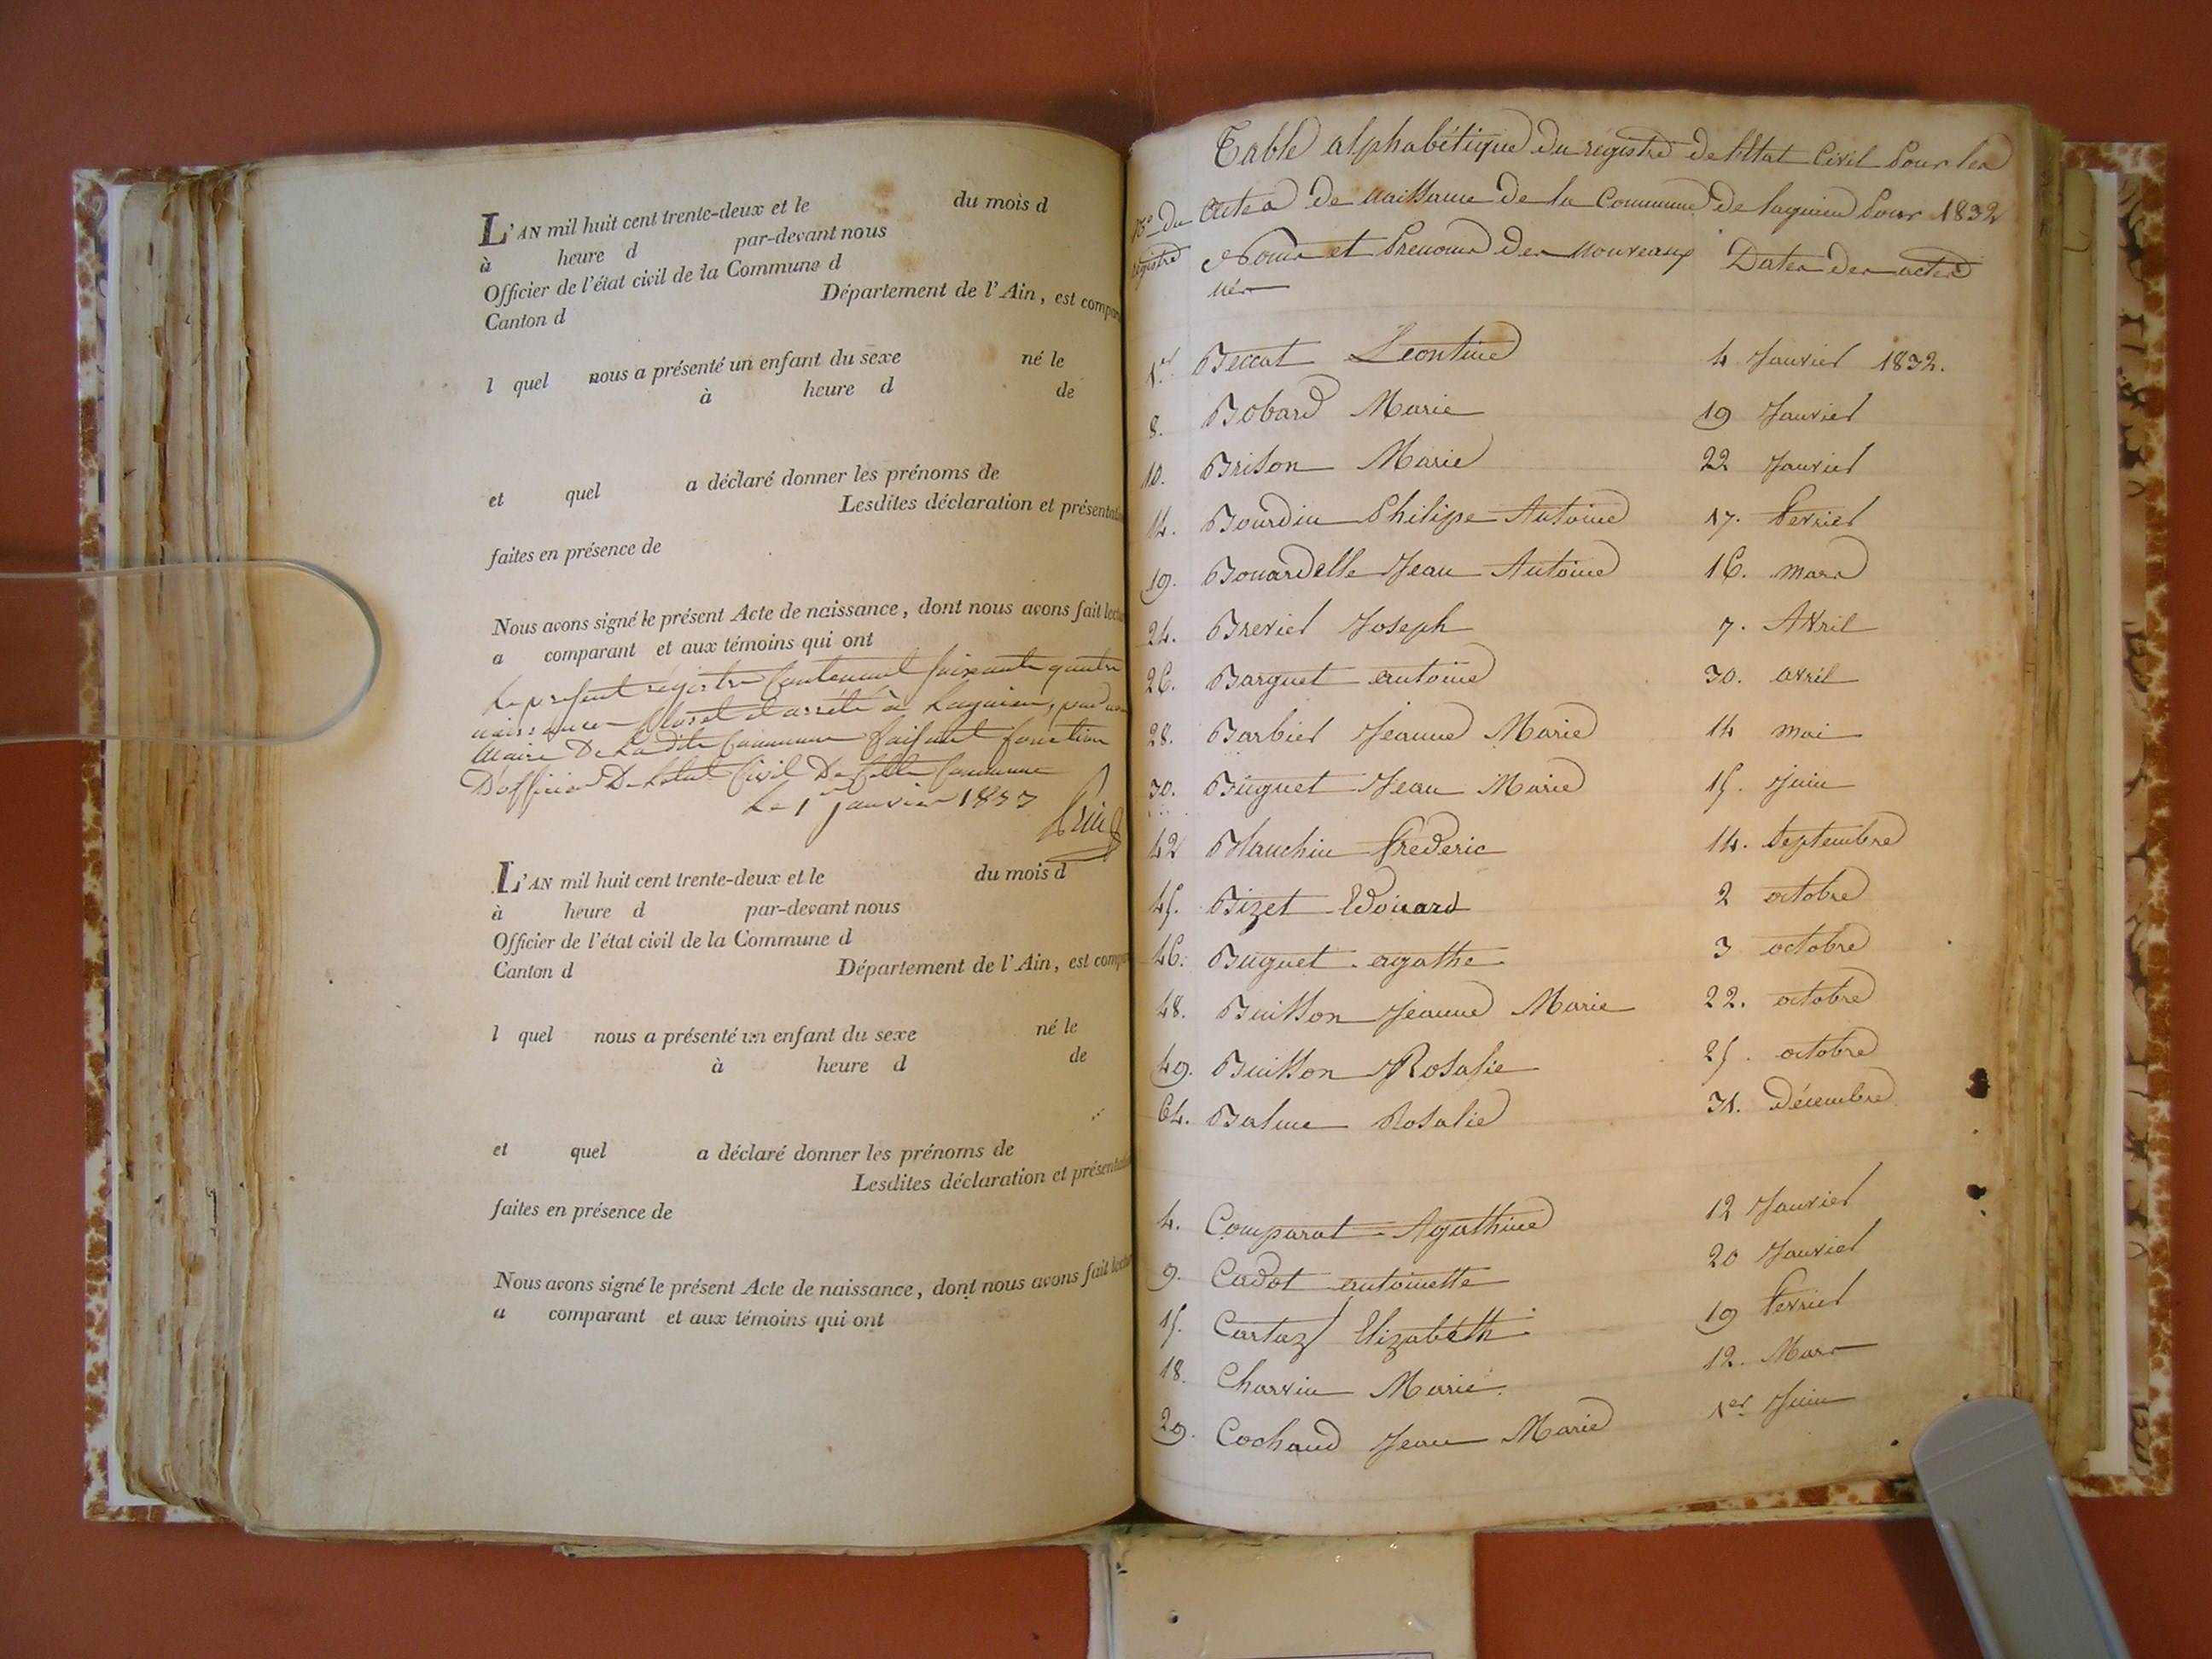 L'AN mil huit cent trente-deux et le du mois d
à heure d par-devant nous
Officier de l'état civil de la Commune d
Canton d Département de l'Ain, est compar
l quel nous a présenté un enfant du sexe né le
à heure d de
et quel a déclaré donner les prénoms de
Lesdites déclaration et présentation
faites en présence de
Nous avons signé le présent Acte de naissance, dont nous avons fait lectu
a comparant et aux témoins qui ont
Le présent registre Contenant soixante quatre
naissances Clos et arrêté à Lagnieu, par nous
Maire De Ladite Commune faisant fonction
D'officier De L'etat Civil De Cette Commune
Le 1er Janvier 1833
L'AN mil huit cent trente-deux et le du mois d
à heure d par-devant nous
Officier de l'état civil de la Commune d
Canton d Département de l'Ain, est compa
l quel nous a présenté un enfant du sexe né le
à heure d de
et quel a déclaré donner les prénoms de
Lesdites déclaration et présentati
faites en présence de
Nous avons signé le présent Acte de naissance, dont nous avons fait lectu
a comparant et aux témoins qui ont
Table alphabétique du registre de l'Etat Civil Pour les
Actes de Naissance de la Commune de lagnieu Pour 1832
No du registre Noms et Prenoms Des nouveaux nés Dates des actes
1er Beccat Leontine 4 Janvier 1832.
8. Bobard Marie 19 Janvier
10. Brison Marie 22 Janvier
14. Bourdin Philipe Antoine 17. fevrier
19. Bouardelle Jean Antoine 16. mars
24. Brevier Joseph 7. Avril
26. Barguet antoine 30. avril
28. Barbier Jeanne Marie 14 mai
30. Buguet Jean Marie 15. Juin
42 Blanchin frederic 14. Septembre
45. Bizet Edouard 2 octobre
46. Buguet agathe 3 octobre
48. Buisson Jeanne Marie 22. octobre
49. Buisson Rosalie 25. octobre
64. Balme Rosalie 31. Décembre
4. Comparat Agathine 12 Janvier
9. Cadot antoinette 20 Janvier
15. Cartaz Elizabéth 19 fevrier
18. Charvin Marie. 12. Mars
29. Cochaud Jean Marie 1er Juin